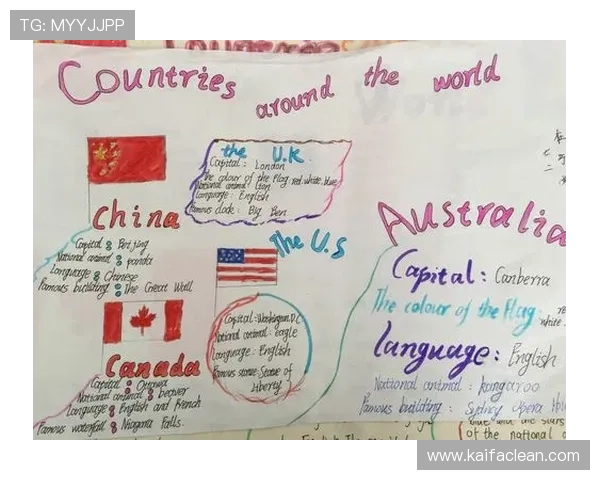 TG: MYYJJPP
Countries around the world
the U.K.
Capital: London
The colour of the flag: red white blue
National animal: lion
Language: English
Famous clock: Big Ben
China
Capital: Beijing
National animal: panda
Language: Chinese
Famous building: The Great Wall
The U.S
Capital: Washington, D.C
National animal: eagle
Language: English
Famous statue: Statue of
liberty
Canada
Capital: Ottawa
National animal: beaver
Language: English and French
Famous waterfall: Niagara Falls.
Australia
Capital: Canberra
The colour of the flag:
white
language: English
National animal: kangaroo
Famous building: Sydney Opera
blue and the stars
of the national
www.kaifaclean.com